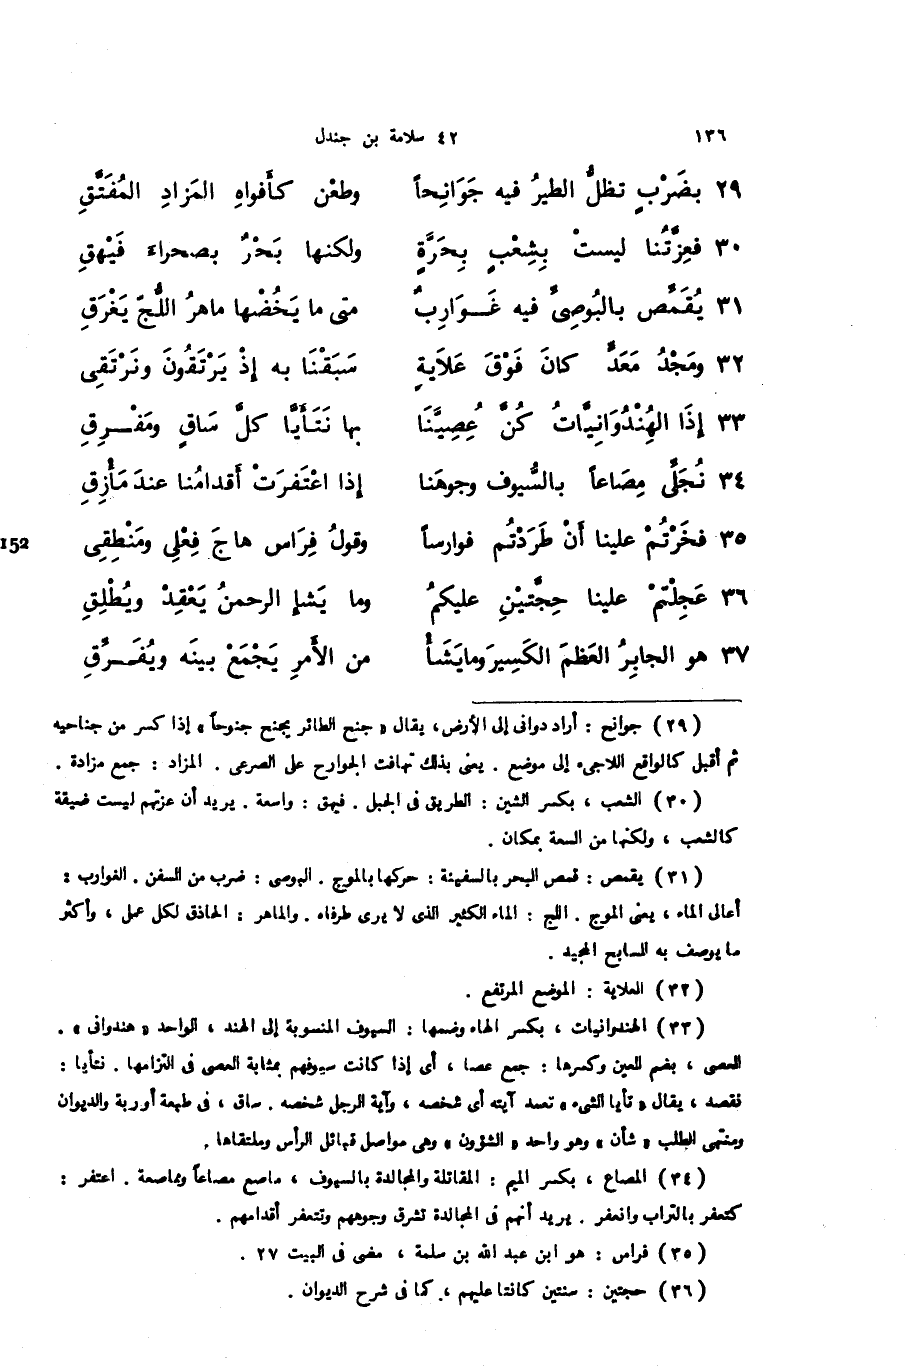 ١٣٦ ٤٢ سلامة بن جندل
٢٩ بضَرْبٍ تظلُّ الطيرُ فيه جَوَانِحاً وطعْن كأَفواهِ المَزادِ المُفَتَّقِ
٣٠ فعِزَّتُنا ليستْ بِشِعْبٍ بِحَرَّةٍ ولكنها بَحْرٌ بصحراءَ فَيْهقِ
٣١ يُقَمَّص بالبُوصِىِّ فيه غَوارِبٌ متى ما يَخُضْها ماهرُ اللُّجّ يَغْرَقِ
٣٢ ومَجْدُ مَعَدٍّ كانَ فَوْقَ عَلاَيةٍ سَبَقْنَا به إذْ يَرْتَقُونَ ونَرْتَقِى
٣٣ إذَا الهِنْدُوَانِيَّاتُ كُنَّ عُصِيَّنَا بها نَتَأَيَّا كلَّ سَاقٍ ومَفْرِقِ
٣٤ نُجَلِّى مِصَاعاً بالسُّيوف وجوهَنا إذا اعْتَفرَتْ أقدامُنا عندَ مَأْزِقِ
٣٥ فخَرْتُمْ علينا أنْ طَرَدْتُم فوارساً وقولُ فِرَاس هاجَ فِعْلِى ومَنْطِقِى
152
٣٦ عَجِلْتمْ علينا حِجَّتَيْنِ عليكمُ وما يَشإِ الرحمنُ يَعْقِدْ ويُطْلِقِ
٣٧ هو الجابِرُ العَظمَ الكَسِيرَ وما يَشَأْ من الأَمرِ يَجْمَعْ بينَه ويُفَرِّقِ
(٢٩) جوانح : أراد دوانى إلى الأرض، يقال « جنح الطائر يجنح جنوحاً » إذا كسر من جناحيه
ثم أقبل كالواقع اللاجىء إلى موضع . يعنى بذلك تهافت الجوارح على الصرعى . المزاد : جمع مزادة .
(٣٠) الشعب ، بكسر الشين : الطريق فى الجبل . فيهق : واسعة . يريد أن عزتهم ليست ضيقة
كالشعب ، ولكنها من السعة بمكان .
(٣١) يقمص : قمص البحر بالسفينة : حركها بالموج . البوصى : ضرب من السفن . الغوارب :
أعالى الماء ، يعنى الموج . اللج : الماء الكثير الذى لا يرى طرفاه . والماهر : الحاذق لكل عمل ، وأكثر
ما يوصف به السابح المجيد .
(٣٢) العلاية : الموضع المرتفع .
(٣٣) الهندوانيات ، بكسر الهاء وضمها : السيوف المنسوبة إلى الهند ، الواحد « هندوانى » .
العصى ، بضم العين وكسرها : جمع عصا ، أى إذا كانت سيوفهم بمثابة العصى فى التزامها . نتأيا :
نقصد ، يقال « تأيا الشىء » تعمد آيته أى شخصه ، وآية الرجل شخصه . ساق ، فى طبعة أوربة والديوان
ومنتهى الطلب « شأن » وهو واحد « الشؤون » وهى مواصل قبائل الرأس وملتقاها .
(٣٤) المصاع ، بكسر الميم : المقاتلة والمجالدة بالسيوف ، ماصع مصاعاً ومماصعة . اعتفر :
كتعفر بالتراب وانعفر . يريد أنهم فى المجالدة تشرق وجوههم وتتعفر أقدامهم .
(٣٥) فراس : هو ابن عبد الله بن سلمة ، مضى فى البيت ٢٧ .
(٣٦) حجتين : سنتين كانتا عليهم ، كما فى شرح الديوان .